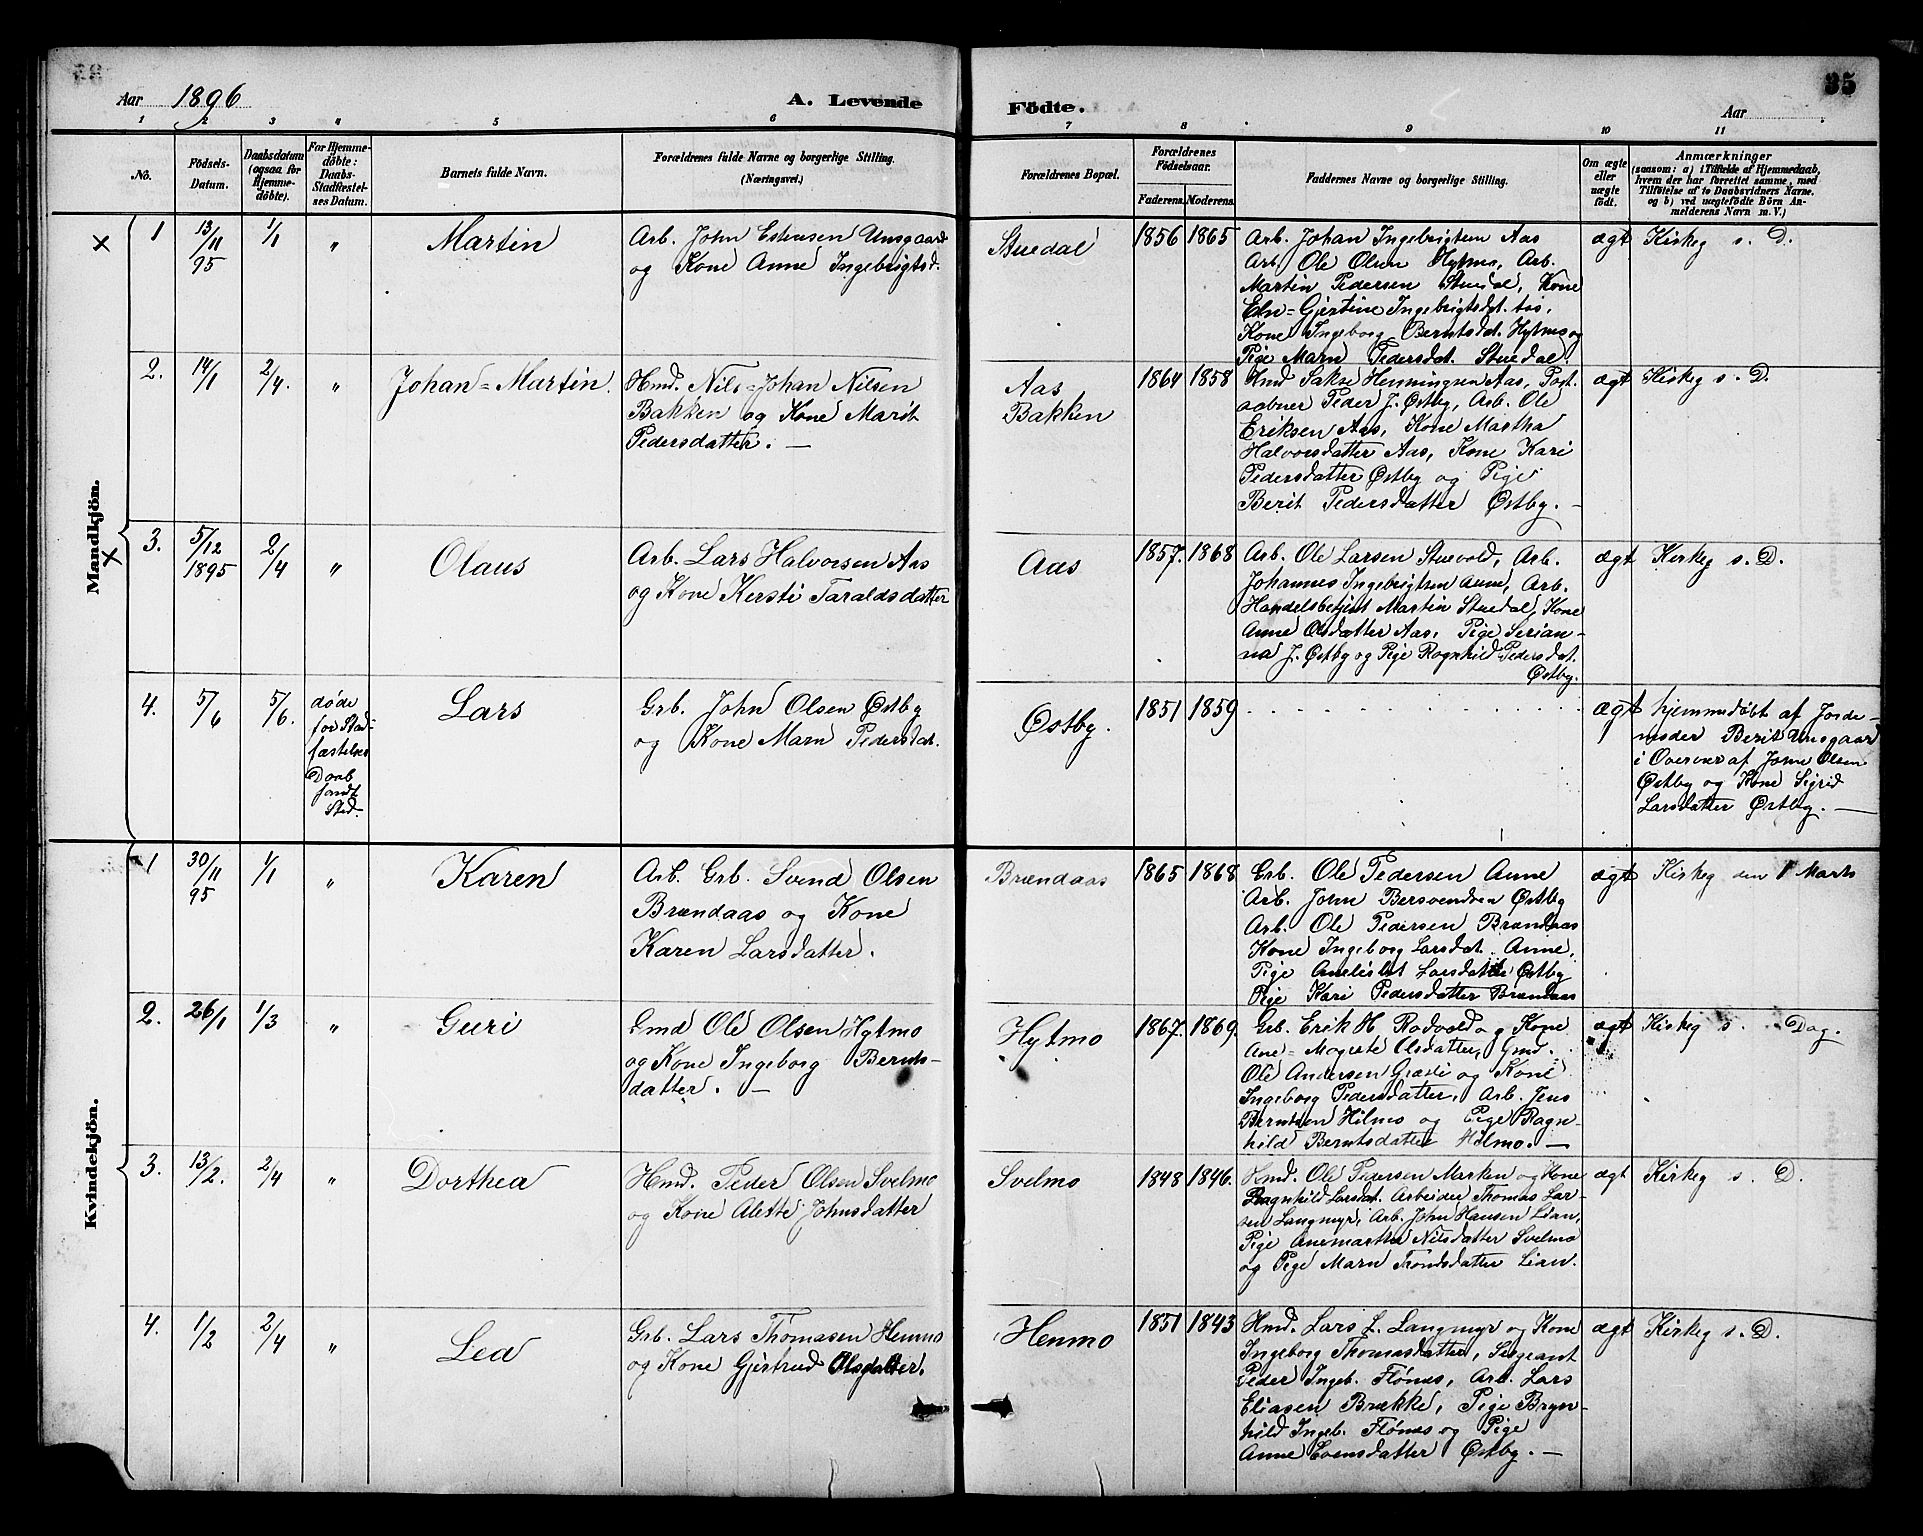 Aar 1896 A. Levende Födte. Aar 35
1 2 3 4 5 6 7 8 9 10 11
No. Födsels-Datum. Daabsdatum (ogsaa for Hjemmedøbte). For Hjemmedøbte: Daabs-Stadfæstelses Datum. Barnets fulde Navn. Forældrenes fulde Navne og borgerlige Stilling. (Næringsvei.) Forældrenes Bopæl. Forældrenes Födselsaar. Faderens. Moderens. Faddernes Navne og borgerlige Stilling. Om ægte eller uægte født. Anmærkninger (saasom: a) i Tilfælde af Hjemmedaab, hvem der har forrettet samme, med Tilföielse af to Daabsvidners Navne. og b) ved uægtefödte Börn Anmelderens Navn m. V.)
Mandkjön.
1 13/11 95 1/1 " Martin
Arb. John Estensen Unsgaard
og Kone Anne Ingebrigtsd.
Stuedal 1856 1865
Arb. Johan Ingebrigtsen Aas
Arb. Ole Olsen Hytmo, Arb.
Martin Pedersen Stuedal, Kone
Eln=Gjertine Ingebrigtsdt. Aas,
Kone Ingeborg Berntsdat. Hytmo og
Pige Marn Pedersdat. Stuedal.
ægt Kirkeg s. D.
2. 14/1 2/4. " Johan=Martin.
Hmd. Nils=Johan Nilsen
Bakken og Kone Marit
Pedersdatter. —
Aas
Bakken
1864 1858
Hmd Sakse Henningsen Aas, Post-
aabner Peder J. Østby, Arb. Ole
Eriksen Aas, Kone Martha
Halvorsdatter Aas, Kone Kari
Pedersdatter Østby og Pige
Berit Pedersdatter Østby. —
ægt Kirkeg s. D.
3. 5/12 1895 2/4 " Olaus
Arb. Lars Halvorsen Aas
og Kone Kersti Taraldsdatter
Aas 1857. 1868
Arb. Ole Larsen Stuevold, Arb.
Johannes Ingebrigtsen Aune, Arb.
Handelsbetjent Martin Stuedal, Kone
Anne Olsdatter Aas, Pige Serian-
na J. Østby og Pige Ragnhild Pedersdat.
Østby.
ægt Kirkeg s. D.
4. 5/6 5/6.
døde
før Stad-
fæstelses
Daab
fandt
Sted.
Lars
Grb. John Olsen Østby
og Kone Marn Pedersdat.
Østby. 1851 1859
ægt
hjemmedøbt af Jorde-
moder Berit Unsgaard
i Overvær af John Olsen
Østby og Kone Sigrid
Larsdatter Østby. —
Kvindekjön.
1 30/11 95 1/1 " Karen
Arb. Grb. Svend Olsen
Brændaas og Kone
Karen Larsdatter.
Brændaas 1865 1868
Grb. Ole Pedersen Aune
Arb. John Bersvendsen Østby
Arb. Ole Pedersen Brændaas
Kone Ingeborg Larsdat. Aune,
Pige Anelisbet Larsdatter Østby
Pige Kari Pedersdatter Brændaas
ægt Kirkeg den 1 Marts
2. 26/1 1/3 " Guri
Gmd Ole Olsen Hytmo
og Kone Ingeborg Bernts-
datter. —
Hytmo 1867. 1869.
Grb. Erik H. Rodvold og Kone
Ane=Magrete Olsdatter, Gmd.
Ole Andersen Græsli og Kone
Ingeborg Pedersdatter, Arb. Jens
Berntsen Hilmo og Pige Ragn-
hild Berntsdatter Hilmo. —
ægt Kirkeg s. Dag.
3. 13/2. 2/4 " Dorthea
Hmd. Peder Olsen Svelmo
og Kone Alette Johnsdatter
Svelmo 1848 1846.
Hmd. Ole Pedersen Marken og Kone
Ragnhild Larsdat. Arbeider Thomas Lar-
sen Langmyr, Arb. John Hansen Lian,
Pige Anemartha Nilsdatter Svelmo
og Pige Marn Trondsdatter Lian.
ægt Kirkeg s. D.
4. 1/2 2/4 " Lea
Grb. Lars Thomasen Henmo
og Kone Gjertrud Olsdatter.
Henmo 1851 1843
Hmd. Lars L. Langmyr og Kone
Ingeborg Thomasdatter, Sergeant
Peder Ingeb. Flönæs, Arb. Lars
Eliasen Brække, Pige Bryn-
hild Ingeb. Flönæs og Pige
Anne Evensdatter Østby. —
ægt Kirkeg s. D.